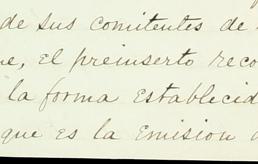 de sus comitentes de
el preinserto reco
la forma establecid
que es la emision